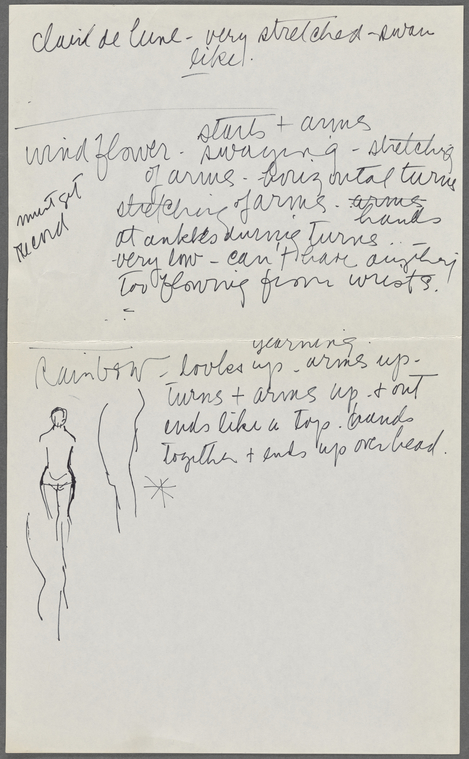 Claire de Lune - very stretched - swan
like.
starts + arms
Windflower - swaying - stretching
of arms - horizontal turns
must get
record
stretching of arms. arms
hands
at ankles during turns . . -
very low - can't have anything
too flowing from wrists.
yearning.
Rainbow - looks up - arms up -
turns + arms up + out
ends like a top. hands
together + ends up overhead.